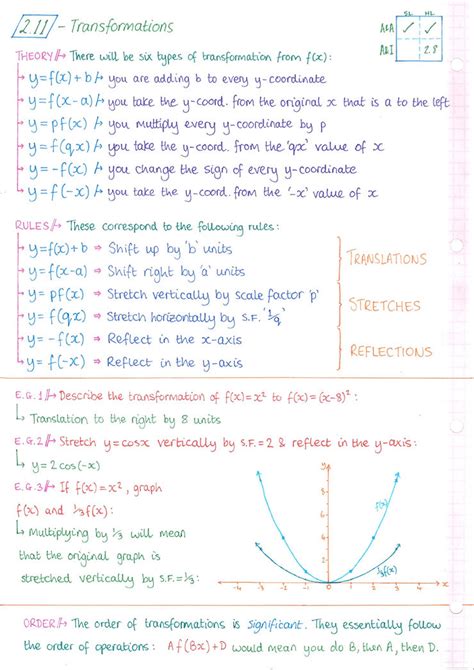 2.11 - Transformations
SL HL
A&A ✓ ✓
A&I 2.8
THEORY There will be six types of transformation from f(x):
y=f(x)+b you are adding b to every y-coordinate
y=f(x-a) you take the y-coord. from the original x that is a to the left
y=pf(x) you multiply every y-coordinate by p
y=f(qx) you take the y-coord. from the 'qx' value of x
y=-f(x) you change the sign of every y-coordinate
y=f(-x) you take the y-coord. from the '-x' value of x
RULES These correspond to the following rules:
y=f(x)+b ⇒ Shift up by 'b' units
y=f(x-a) ⇒ Shift right by 'a' units
TRANSLATIONS
y=pf(x) ⇒ Stretch vertically by scale factor 'p'
y=f(qx) ⇒ Stretch horizontally by S.F. '1/q'
STRETCHES
y=-f(x) ⇒ Reflect in the x-axis
y=f(-x) ⇒ Reflect in the y-axis
REFLECTIONS
E.G.1 Describe the transformation of f(x)=x² to f(x)=(x-8)²:
Translation to the right by 8 units
E.G.2 Stretch y=cosx vertically by S.F.=2 & reflect in the y-axis:
y=2cos(-x)
E.G.3 If f(x)=x², graph
f(x) and ⅓f(x):
Multiplying by ⅓ will mean
that the original graph is
stretched vertically by S.F.=⅓:
y
f(x)
⅓f(x)
-4 -3 -2 -1 0 1 2 3 4 x
ORDER The order of transformations is significant. They essentially follow
the order of operations: Af(Bx)+D would mean you do B, then A, then D.